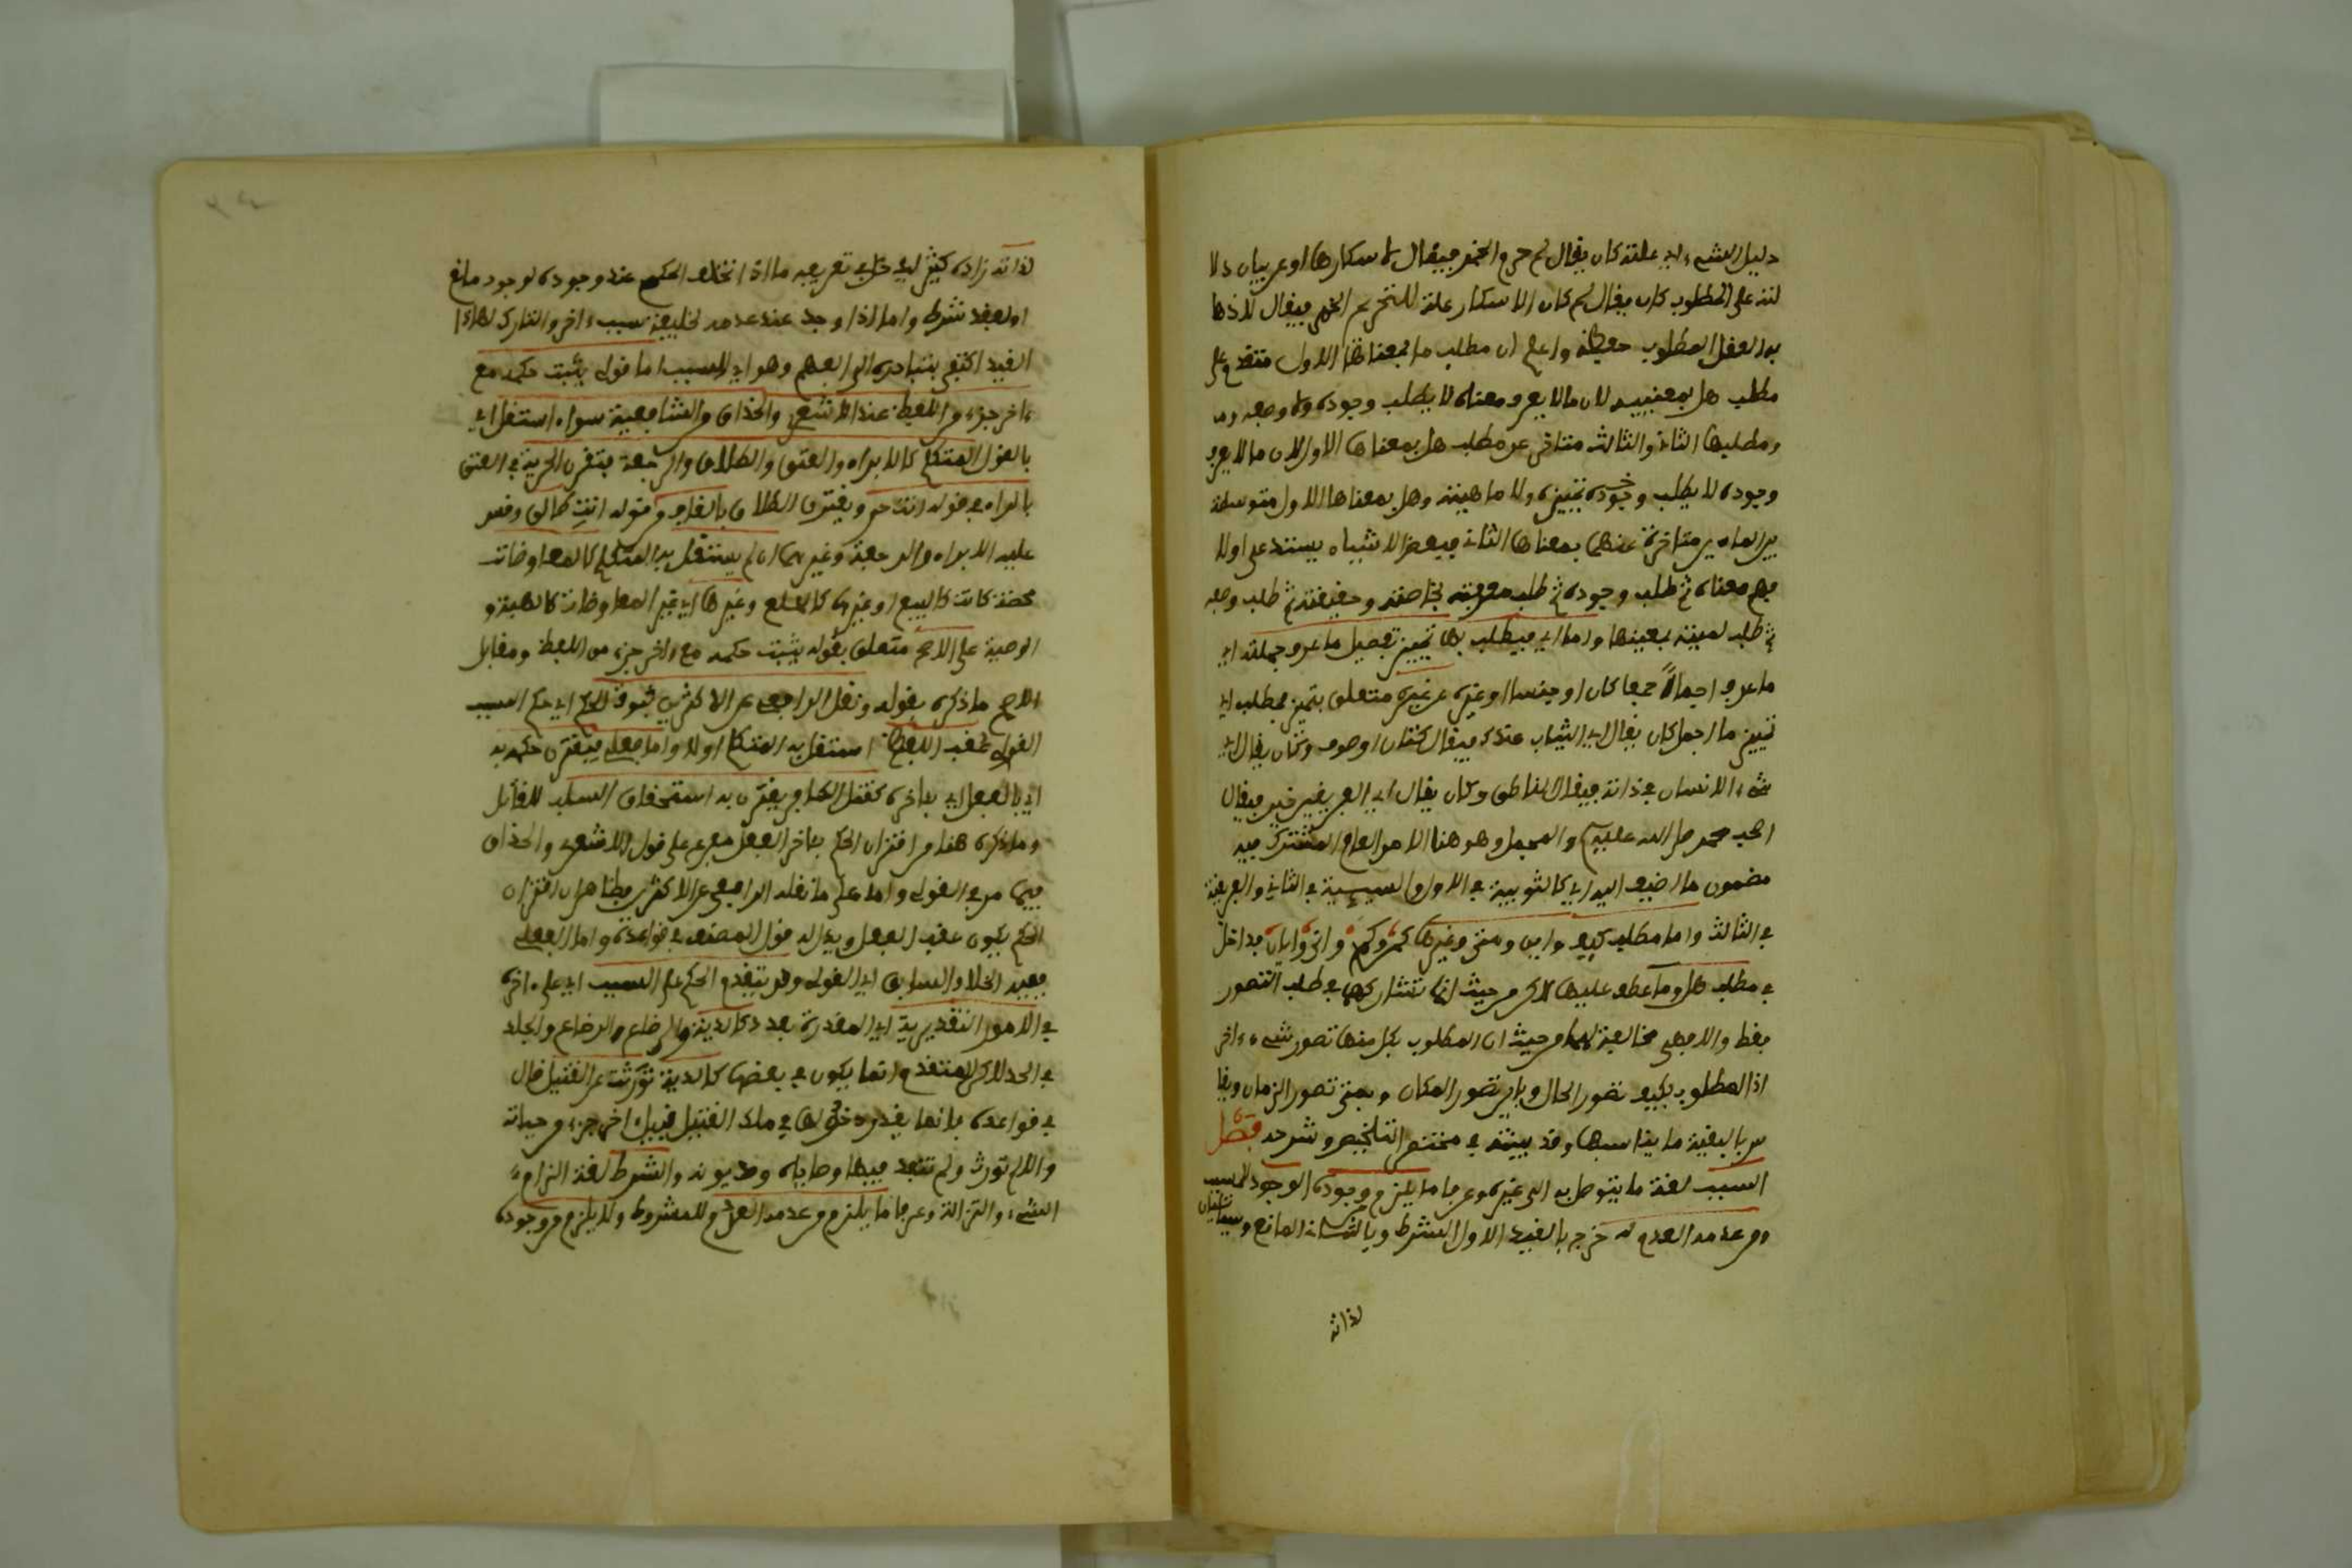 دليل الشيء اي علته كان يقال لم حرم الخمر فيقال لاسكارها او عن بيان دلا
لته على المطلوب كان يقال لم كان الاسكار علة للتحريم الخمر فيقال لاذها
به العقل المطلوب حفظه واعلم ان مطلب ما بمعناها الاول متقدم على
مطلب هل بمعنييه لان ما لا يعرف معناه لا يطلب وجوده ولا وصفه
ومطلبها الثاني والثالث متاخر عن مطلب هل بمعناها الاول لان ما لا يعرف
وجوده لا يطلب تمييزه ولا ماهيته وهل بمعناها الاول متوسطة
بين الماءين متاخرة عنهما بمعناها الثاني فبعض الاشياء يستدعى اولا
فهم معناه ثم طلب وجوده ثم طلب معرفة خاصته وحقيقته ثم طلب وصفه
ثم طلب لميته بعينها واما اي فيطلب بها تمييز تفصيل ما عرف جملته اي
ما عرف اجمالا جمعا كان او جنسا او غيره عن غيره متعلق بتمييز فمطلب اي
تمييز ما اجمل كان يقال اي الثياب عندك فيقال كتان او صوف وكان يقال اي
شيء الانسان في ذاته فيقال ناطق وكان يقال اي الفريقين خير فيقال
اصحب محمد صلى الله عليه والمجمل وهو هنا الامر العام المشترك فيه
مضمون ما اضيف اليه اي كالثوبية في الاول والشيئية في الثاني والفريقية
في الثالث واما مطلب كيف واين ومتى وغيرها ككم وكم واني وايان فداخل
في مطلب هل وما عطف عليها لاكن من حيث انها تتشاركهما في طلب التصور
فقط والا فهي مخالفة لهما من حيث ان المطلوب بكل منها تصور شيء ءاخر
اذ المطلوب بكيف تصور الحال وباين تصور المكان وبمتى تصور الزمان وقا
س بالبقية ما يناسبها وقد بينته في مختصر التلخيص وشرحه فصل
السبب لغة ما يتوصل به الى غيره وعرفا ما يلزم من وجوده الوجود للمسبب
ومن عدمه العدم له خرج بالقيد الاول الشرط وبالثاني المانع وسياتيان
لذاته
لذاته زاده كثير اي في تعريفه ما اذا تخلف الحكم عند وجوده لوجود مانع
او لفقد شرط واما اذا وجد عند عدمه لخليفة سبب ءاخر والتارك لهذا
القيد اكتفى بتبادره الى الفهم وهو اي السبب اما قولي يثبت حكمه مع
ءاخر جزء من اللفظ عند الاشعري والحذاق والشافعية سواء استقل اي
بالقول المتكلم كالابراء والعتق والطلاق والرجعة فتقترن الحرية في العتق
بالراء في قوله انت حر ويقترن الطلاق بالقاف في قوله انت طالق وقس
عليه الابراء والرجعة وغيرهما ام لم يستقل به المتكلم كالمعاوضات
محضة كانت كالبيع او غيرها كالخلع وغيرها اي غير المعاوضات كالهبة و
الوصية على الاصح متعلق بقوله يثبت حكمه مع ءاخر جزء من اللفظ ومقابل
الاصح ما ذكره بقوله ونقل الرافعي عن الاكثرين ثبوت الحكم اي حكم السبب
القولي عقب اللفظ استقل به المتكلم اولا واما فعلي فيقترن حكمه به
اي بالفعل اي بءاخره كقتل الكافر يقترن به استحقاق السلب للقاتل
وما ذكره هنا من اقتران الحكم بءاخر الفعل مفرع على قول الاشعري والحذاق
فيما مر في القولي واما على ما نقله الرافعي عن الاكثرين فظاهر ان اقتران
الحكم يكون عقب الفعل ويؤيده قول المصنف في قواعده واما الفعلي
ففيه الخلاف السابق اي القولي وقد يتقدم الحكم على السبب اي على ءاخره
في الامور التقديرية اي المقدرة بعدد كالدية والرضاع والجلد
في الحد لاكن المتقدم انما يكون في بعضها كالدية تورث عن القتيل قال
في قواعده فانها يقدر دخولها في ملك القتيل قبيل اخر جزء من حياته
والا لم تورث ولم تنفذ فيها وصاياه وديونه والشرط لغة الزام
الشيء والتزامه وعرفا ما يلزم من عدمه العدم للمشروط ولا يلزم من وجوده